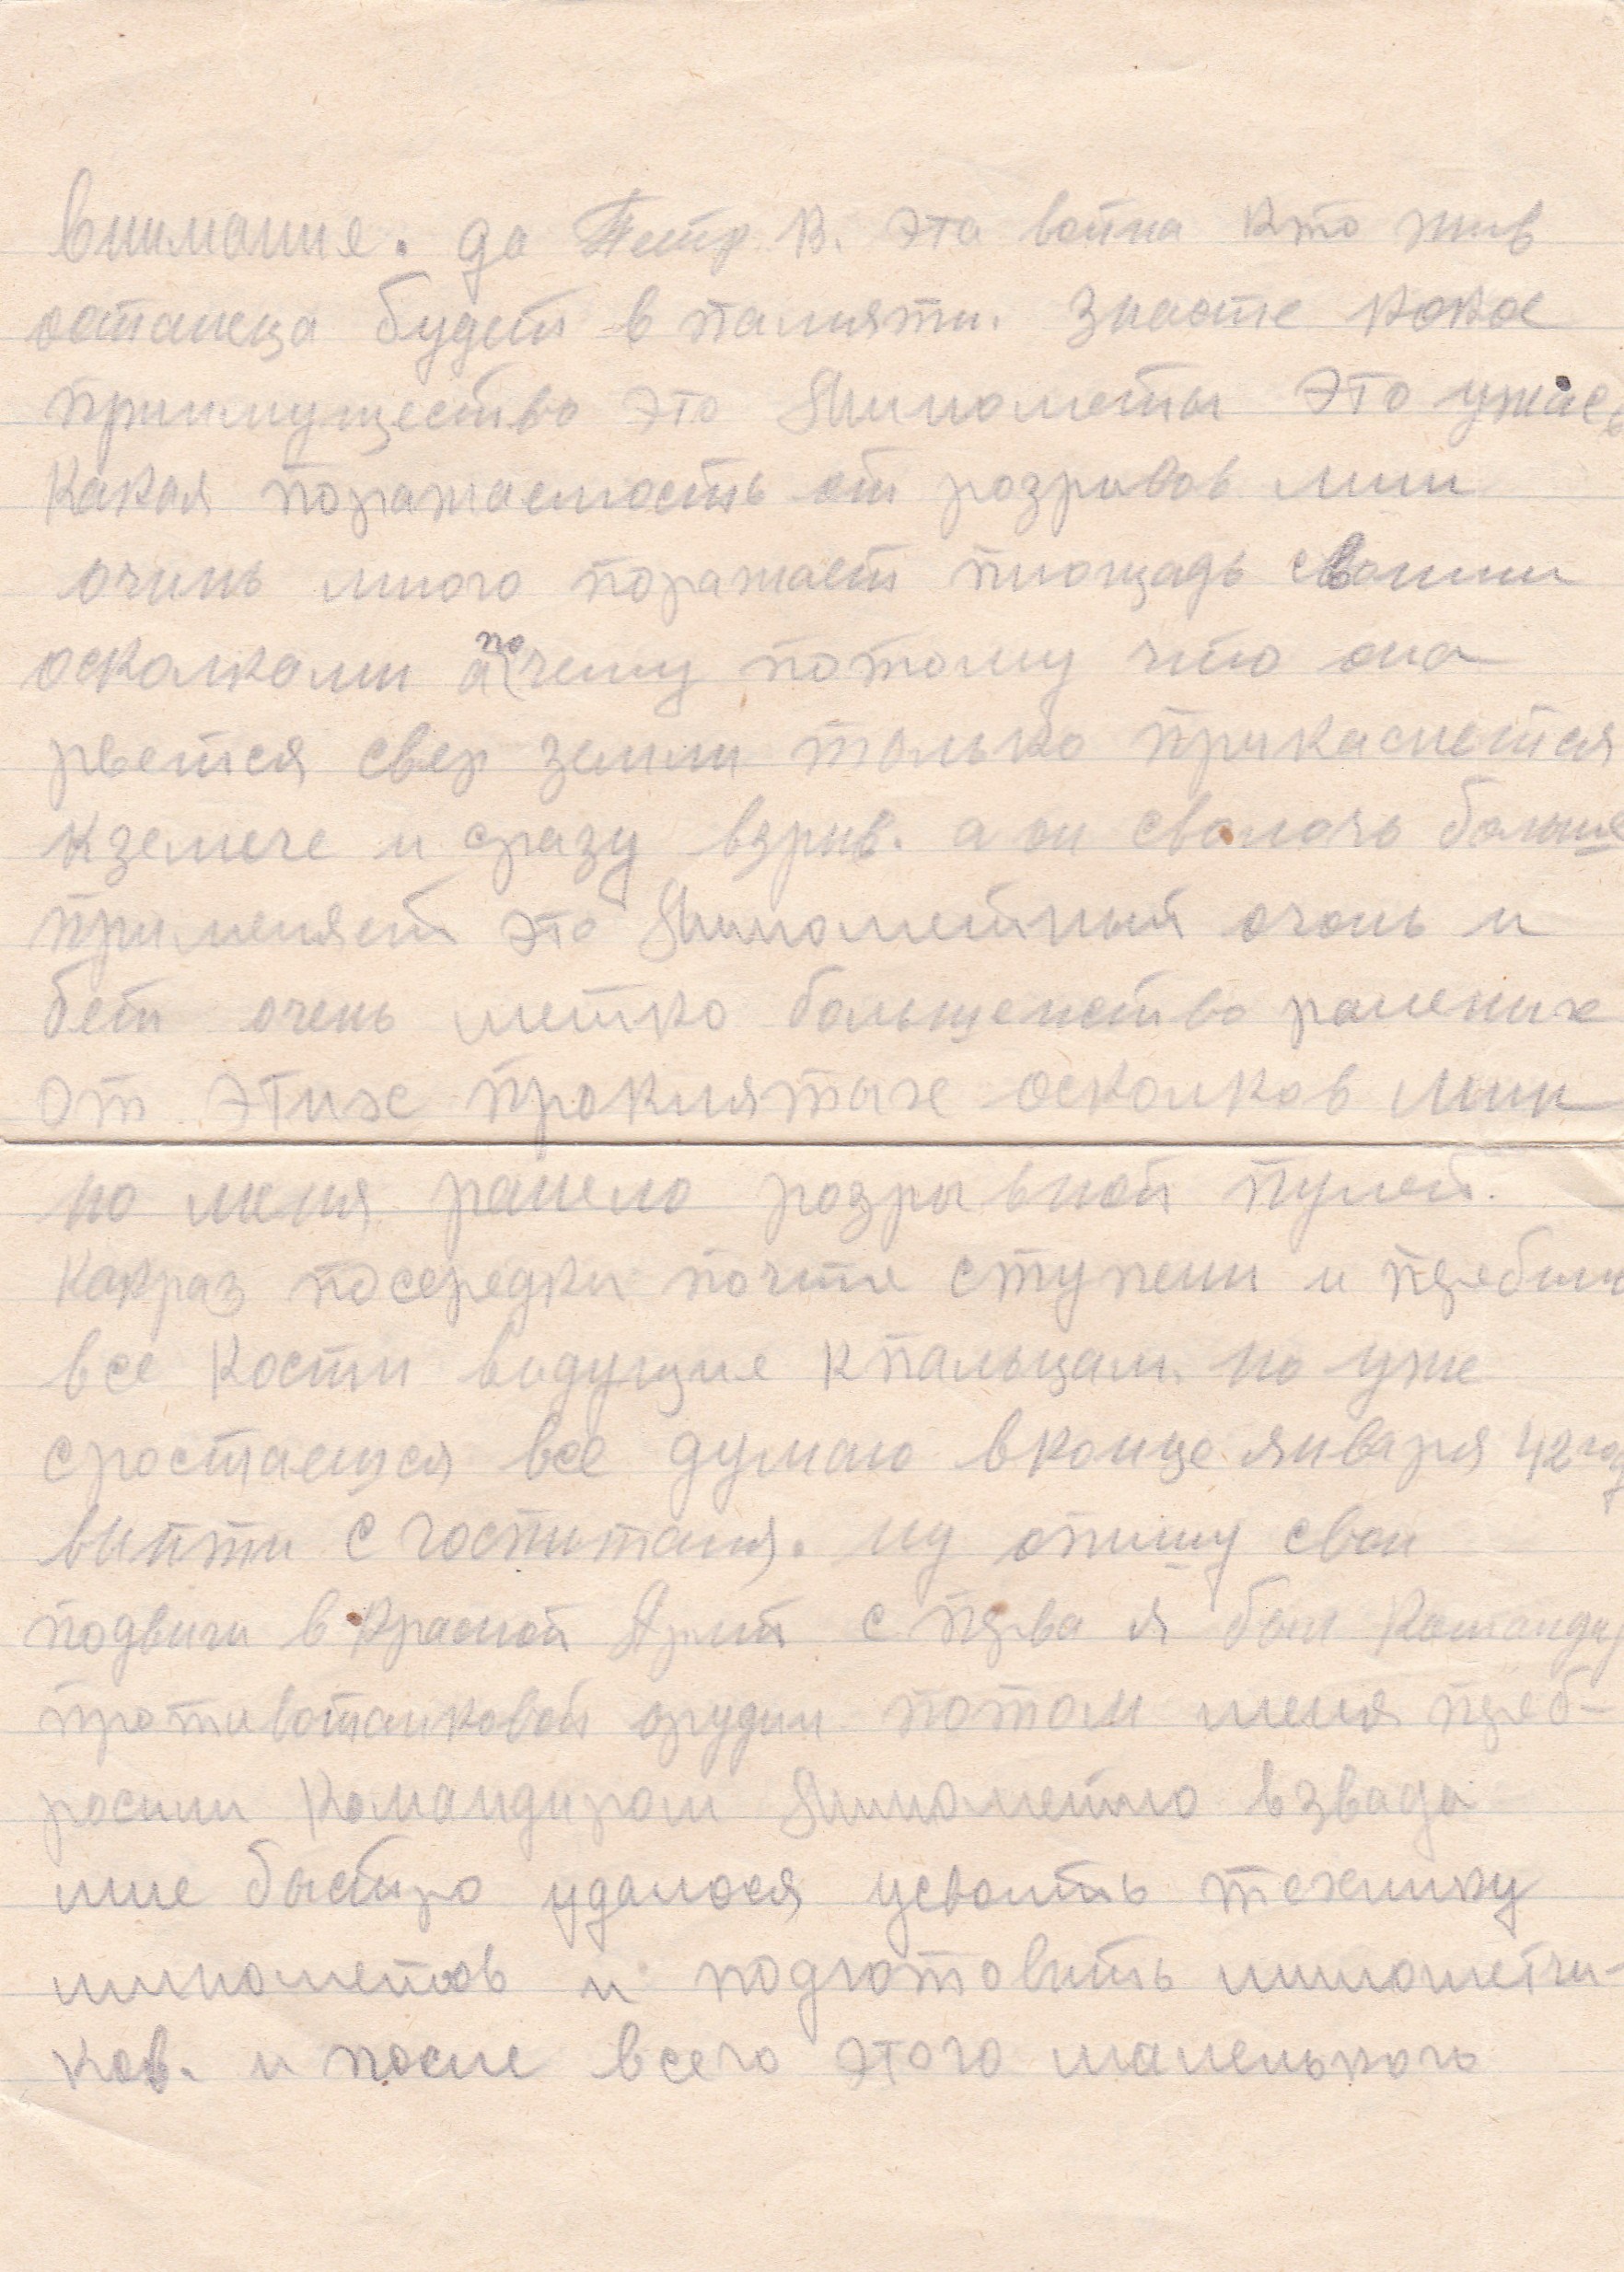 внимание. да Петр В. эта война кто жив
останеца будет в памяти. знаете какое
приимущество это Минометы это ужась
какая поражаемость от розривов мин
очинь много поражает площадь своими
осколками а почему потому что она
рветися свер земли только прикаснетися
кземече и сразу взрив. а он сволочь больше
применяет это Минометный огонь и
бет очень метко большенство раненых
от этих проклятых осколков мин
но меня ранело розрывной пулей.
какраз посередки почти ступени и перебило
все кости видущие кпальцам. но уже
сростаетися все думаю вконце января 42 год
вийти с госпиталя. ну опишу свои
подвиги в красной Армй с перва я был Командир
противотанковой орудии потом меня переб-
росили командиром Минометно взвада
мне быстро удалося усвоить технику
минометов и подготовить минометчи-
ков. и после всего этого маленького